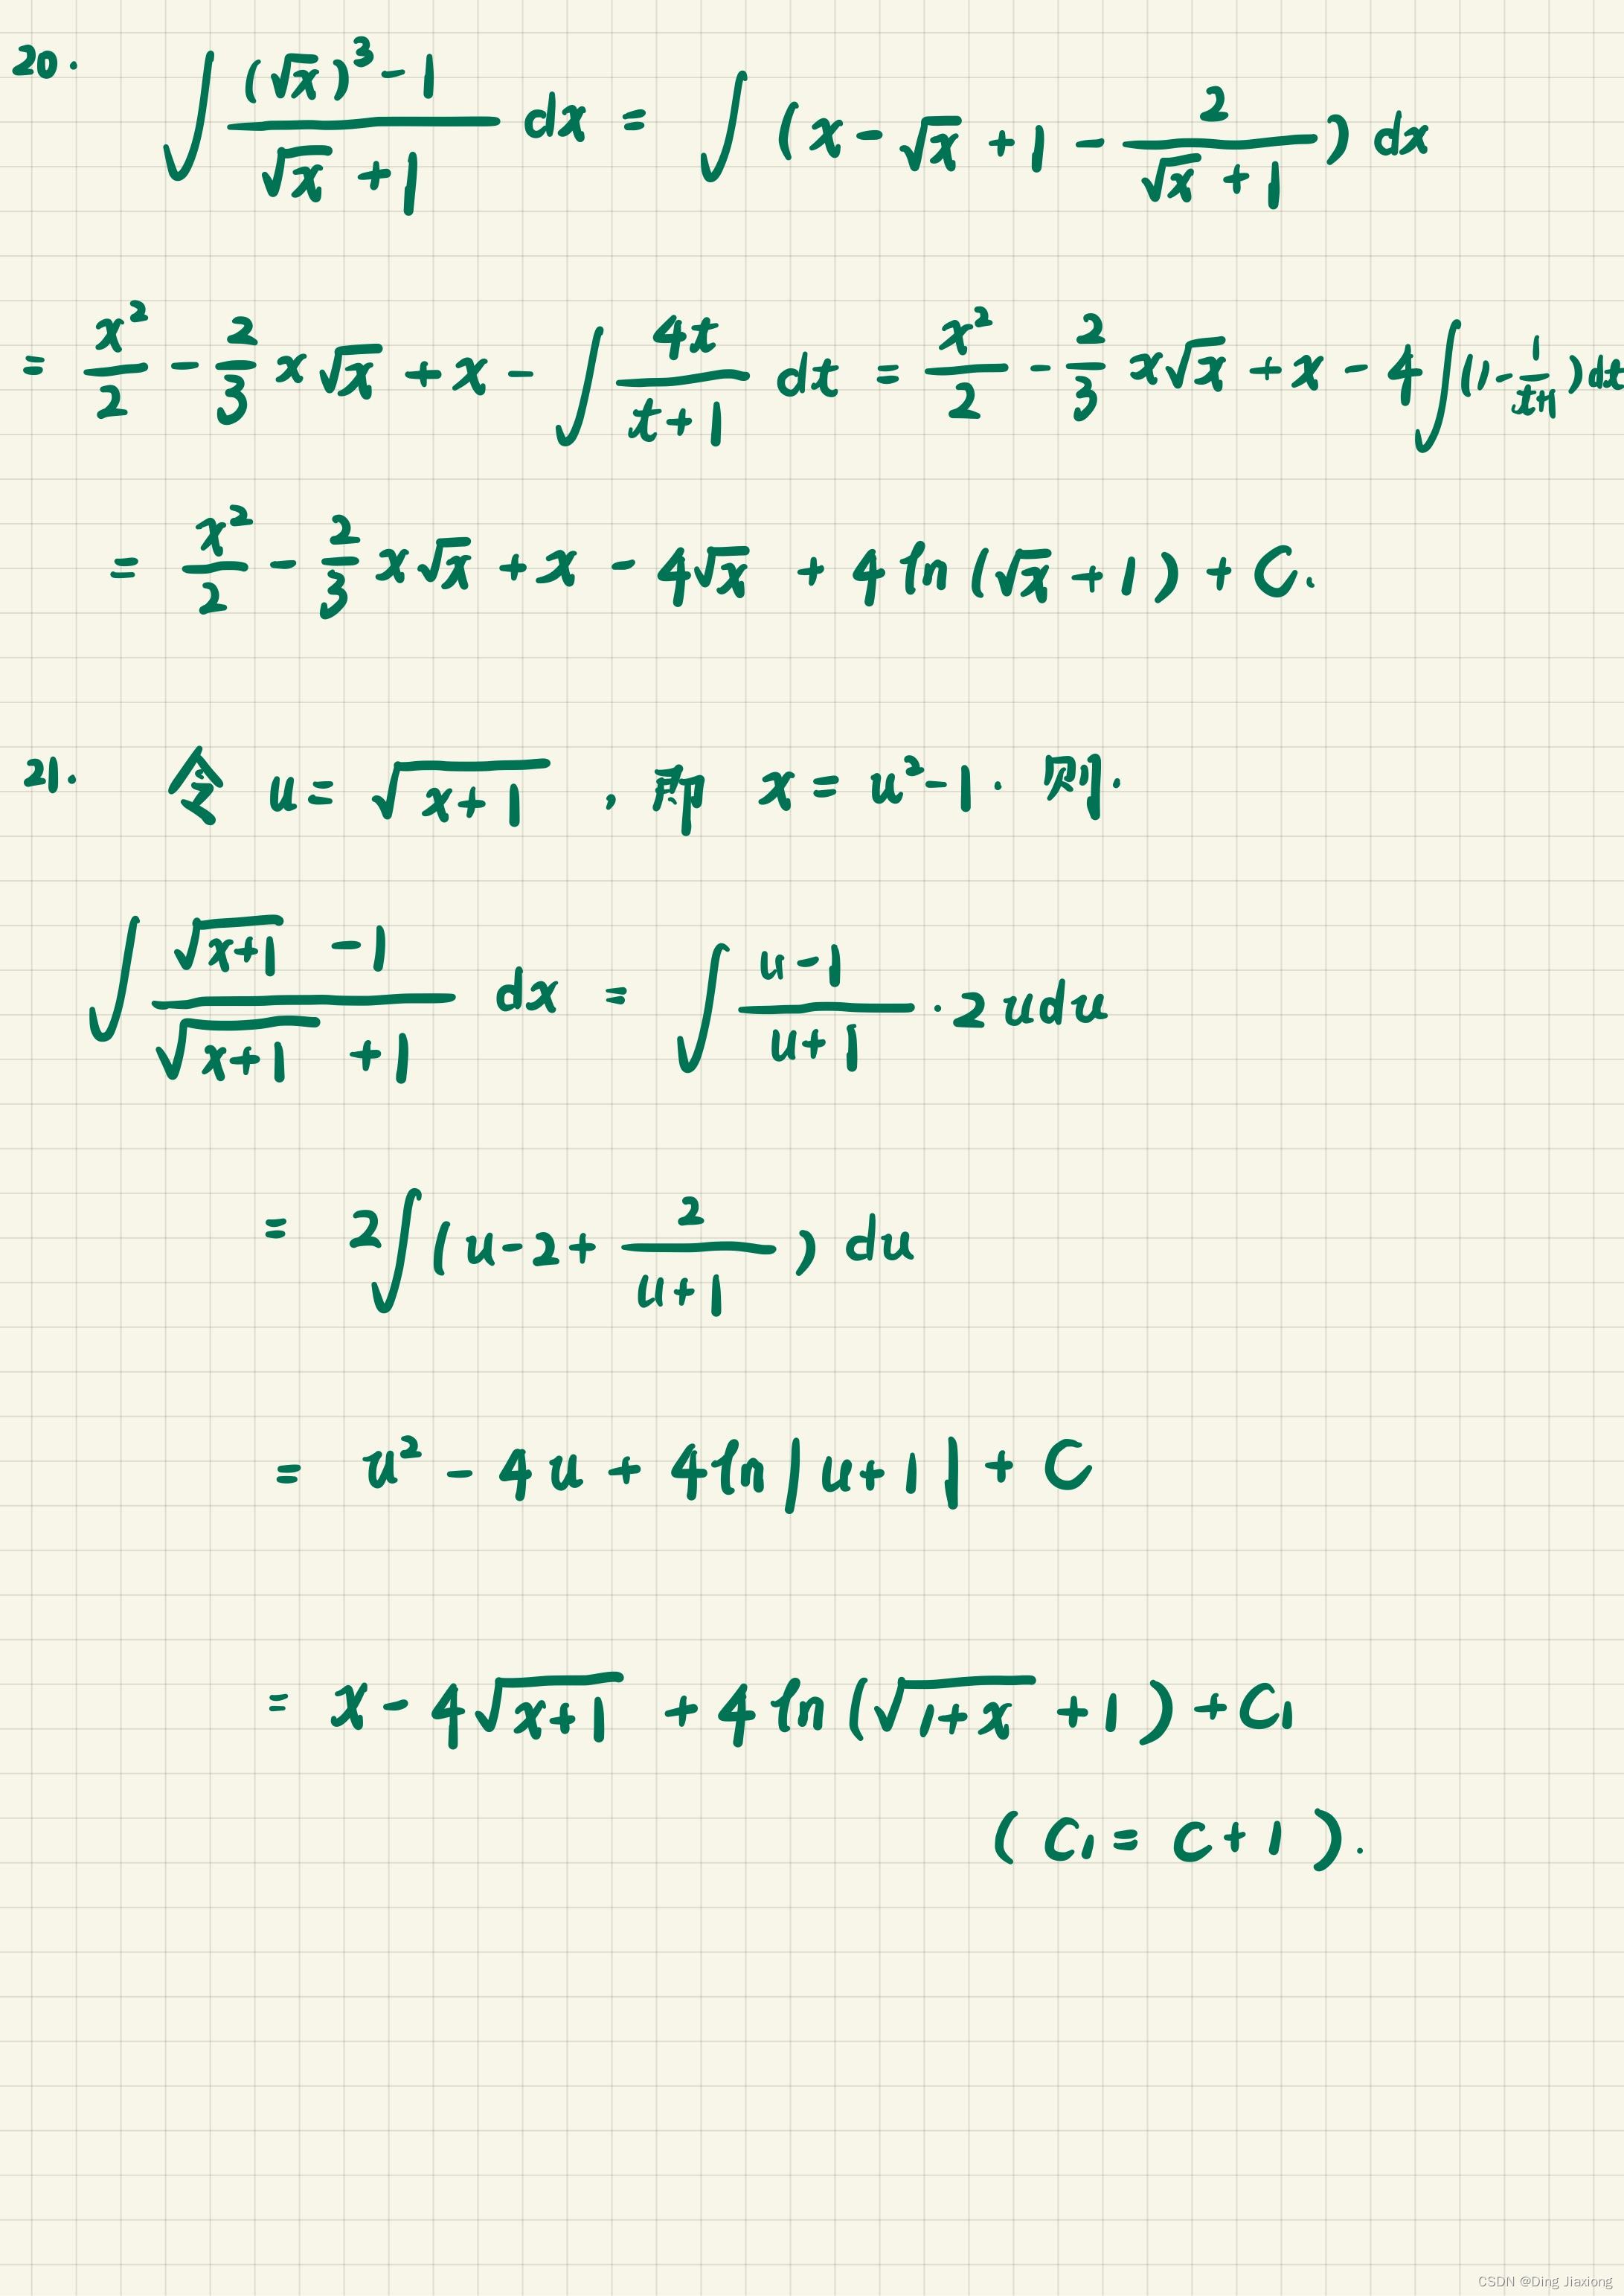 20. ∫ ((√x)³ - 1)/(√x + 1) dx = ∫ (x - √x + 1 - 2/(√x + 1)) dx
= x²/2 - 2/3 x√x + x - ∫ 4t/(t+1) dt = x²/2 - 2/3 x√x + x - 4∫(1 - 1/(t+1))dt
= x²/2 - 2/3 x√x + x - 4√x + 4 ln(√x + 1) + C.
21. 令 u = √(x+1) , 即 x = u² - 1 . 则.
∫ (√(x+1) - 1)/(√(x+1) + 1) dx = ∫ (u-1)/(u+1) · 2udu
= 2∫ (u - 2 + 2/(u+1)) du
= u² - 4u + 4ln|u+1| + C
= x - 4√(x+1) + 4ln(√(1+x) + 1) + C₁
(C₁ = C + 1).
CSDN @Ding Jiaxiong